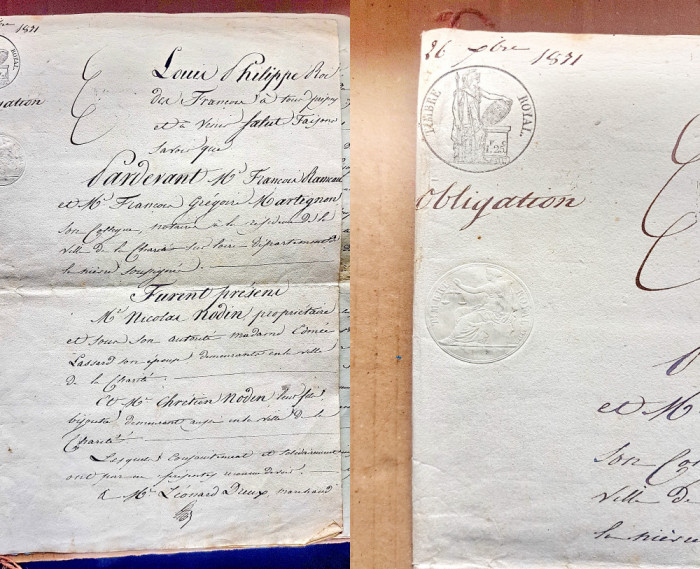 bre 1831
ROYAL
igation
Louis Philippe Roi
des Francois à tous présens
et à Venir Salut Faisons
Savoir que
Pardevant Me. Francois Rameau
et Me. Francois Grégoire Martignon
son Collègue, notaires à la résidence de la
Ville de la Charité sur loire département de
la nièvre Soussignés.
Furent présens
Mr. Nicolas Nodin propriétaire
et sous son autorité madame Edmée
Lassard son épouse demeurants en la ville
de la Charité
Et Mr. Chretien Nodin leur fils
bijoutier demeurant aussi en la ville de la
Charité
Lesquels Conjointement et solidairement
ont par ces présentes reconnu devoir
a Mr. Léonard Dieux marchand
26 xbre 1831
TIMBRE ROYAL.
1 F. 25 C.
Obligation
et M
son Coll
ville de
la nièvre